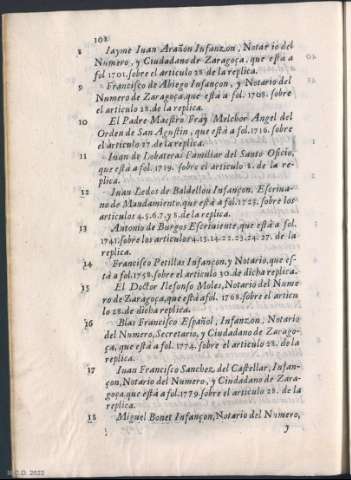 102
8 Iayme Iuan Arañon Infanzon, Notario del
Numero, y Ciudadano de Zaragoça, que està a
fol. 1701. sobre el articulo 28. de la replica.
9 Francisco de Abiego Infançon, y Notario del
Numero de Zaragoça, que està a fol. 1708. sobre
el articulo 28. de la replica.
10 El Padre Maestro Fray Melchor Angel del
Orden de San Agustin, que està a fol. 1716. sobre
el articulo 27. de la replica.
11 Iuan de Lobateras Familiar del Santo Oficio,
que està a fol. 1719. sobre el articulo 8. de la re-
plica.
12 Iuan Ledos de Baldellou Infançon, Escriua-
no de Mandamiento, que està a fol. 1723. sobre los
articulos 4.5.6.7. y 8. de la replica.
13 Antonio de Burgos Escriuiente, que està a fol.
1741. sobre los articulos 4.13.14.22.23.24.27. de la
replica.
14 Francisco Petillas Infançon, y Notario, que es-
tà a fol. 1758. sobre el articulo 30. de dicha replica.
15 El Doctor Ilefonso Moles, Notario del Nume
ro de Zaragoça, que està a fol. 1768. sobre el articu
lo 28. de dicha replica.
16 Blas Francisco Español, Infanzon, Notario
del Numero, Secretario, y Ciudadano de Zarago-
ça, que està a fol. 1774. sobre el articulo 28. de la
replica.
17 Iuan Francisco Sanchez, del Castellar, Infan-
çon, Notario del Numero, y Ciudadano de Zara-
goça, que està a fol. 1779. sobre el articulo 28. de la
replica.
18 Miguel Bonet Infançon, Notario del Numero,
y